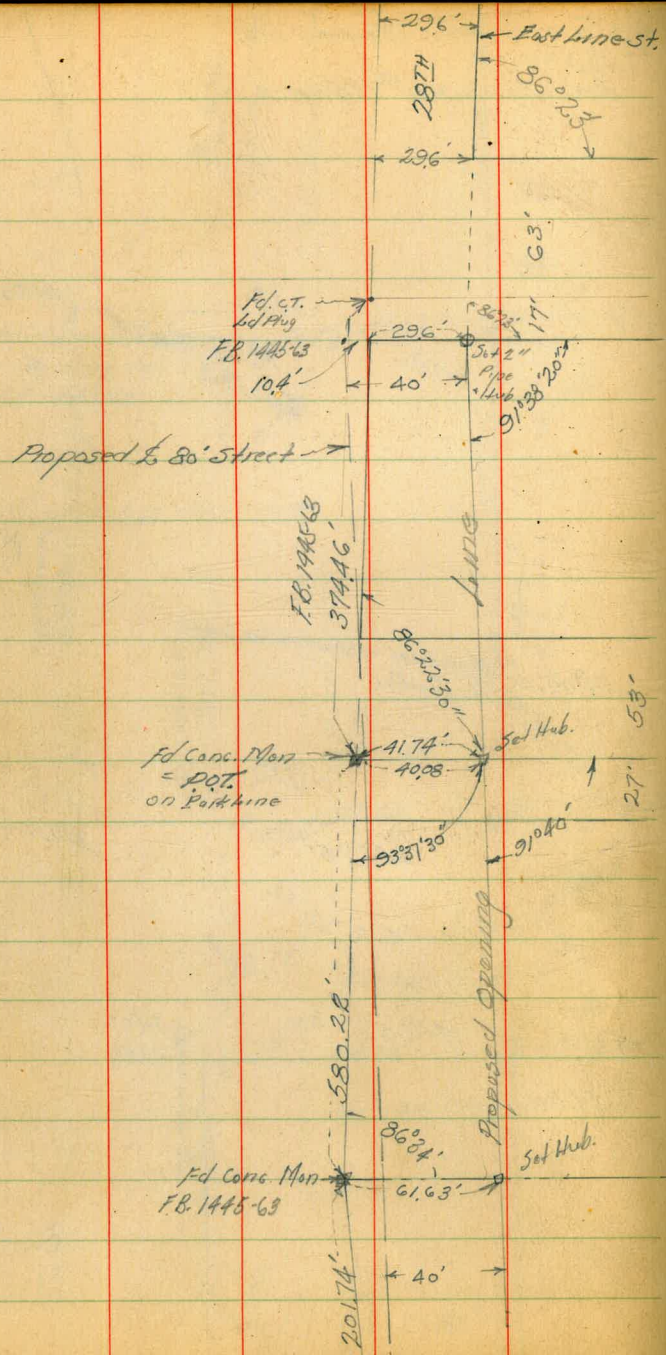 29.6'
East Line st.
28TH
86°23'
29.6'
63'
Fd. C.T.
Ld Plug
F.B. 1445-63
29.6'
86°23'
17'
10.4'
40'
Set 2"
Pipe
Hub
91°38'20"
Proposed ℄ 80' Street
F.B. 1445-63
374.46'
Line
86°22'30"
53'
Fd Conc. Mon
= P.O.T.
on Park Line
41.74'
40.08
Set Hub.
27'
93°37'30"
91°40'
580.22'
Proposed Opening
86°34'
Set Hub.
Fd Conc Mon
F.B. 1445-63
61.63'
201.74'
40'